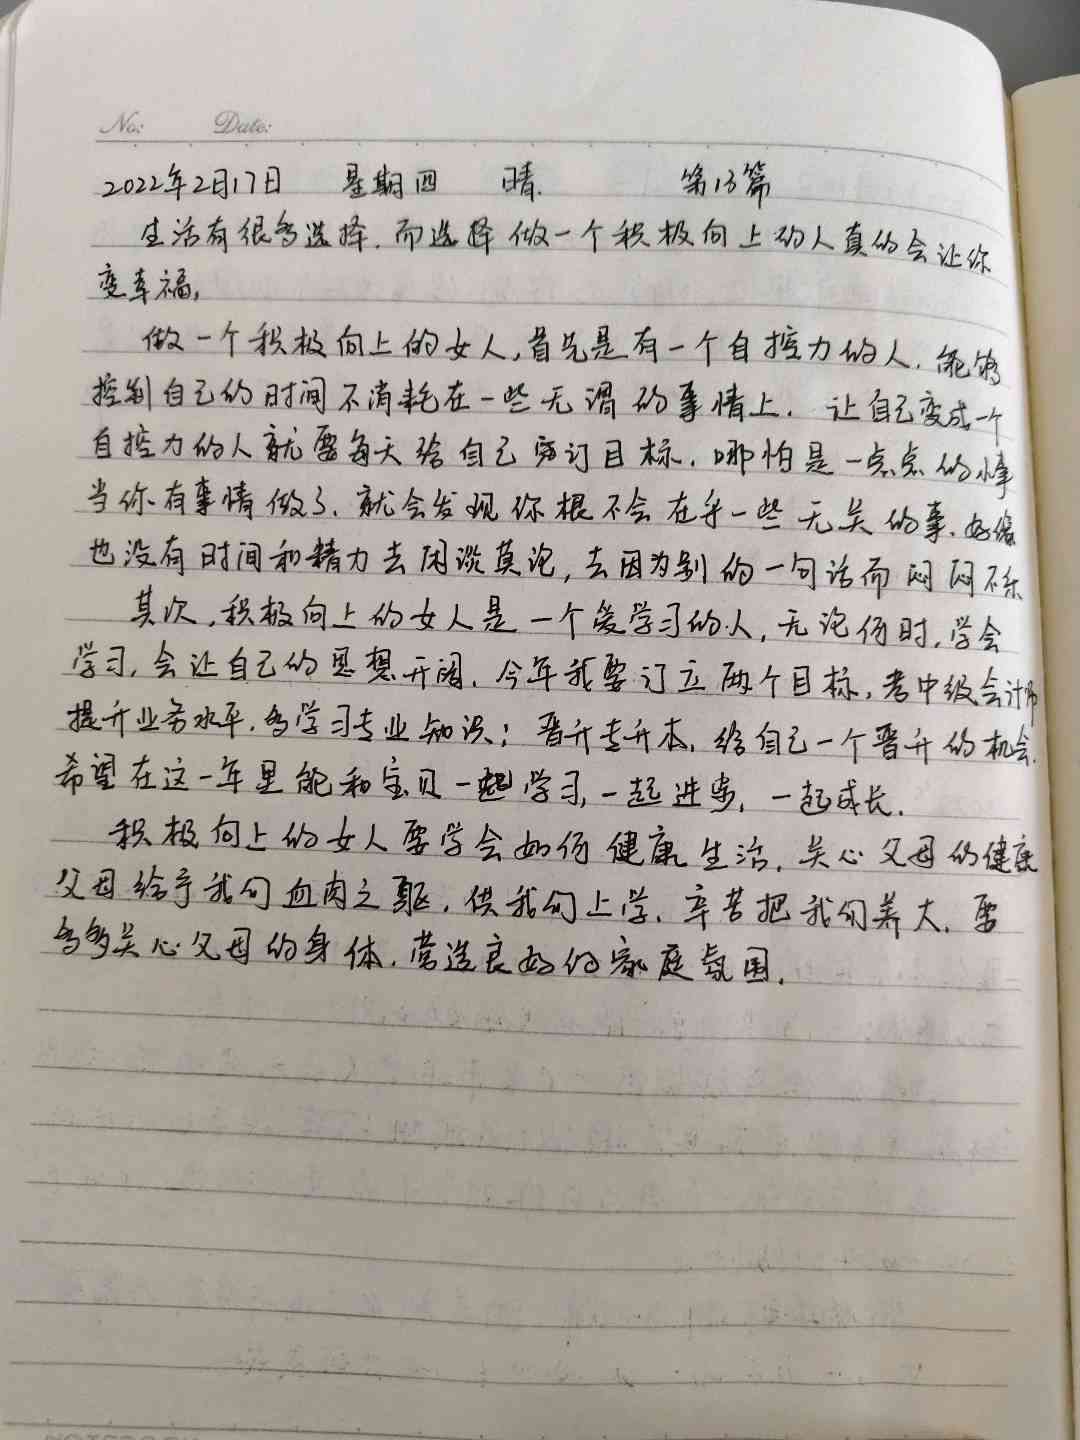 No: Date:
2022年2月17日 星期四 晴. 第13篇
生活有很多选择.而选择做一个积极向上的人真的会让你
变幸福,
做一个积极向上的女人,首先是有一个自控力的人.能够
控制自己的时间不消耗在一些无谓的事情上. 让自己变成一个
自控力的人就要每天给自己订目标.哪怕是一点点的事
当你有事情做了.就会发现你根不会在乎一些无关的事.好像
也没有时间和精力去闲谈莫论,去因为别的一句话而闷闷不乐
其次,积极向上的女人是一个爱学习的人,无论何时,学会
学习,会让自己的思想开阔.今年我要订立两个目标,考中级会计师
提升业务水平.多学习专业知识;晋升专升本,给自己一个晋升的机会.
希望在这一年里能和宝贝一起学习,一起进步,一起成长.
积极向上的女人要学会如何健康生活.关心父母的健康
父母给予我们血肉之躯.供我们上学.辛苦把我们养大.要
多多关心父母的身体.营造良好的家庭氛围.